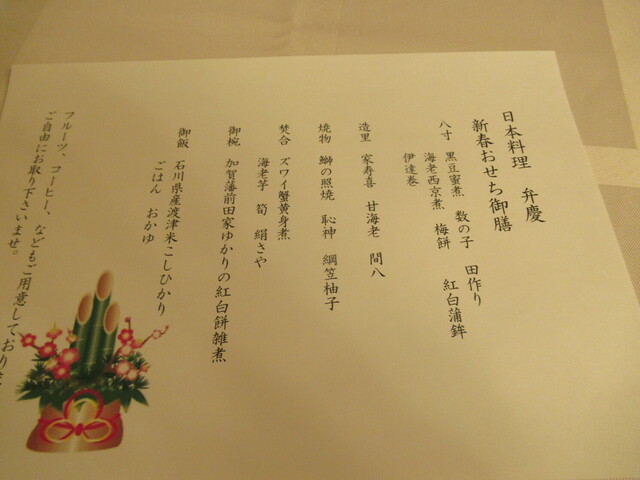 日本料理 弁慶
新春おせち御膳
八寸 黒豆蜜煮 数の子 田作り
海老西京煮 梅餅 紅白蒲鉾
伊達巻
造里 家寿喜 甘海老 間八
焼物 鰤の照焼 恥神 綱笠柚子
焚合 ズワイ蟹黄身煮
海老芋 筍 絹さや
御椀 加賀藩前田家ゆかりの紅白餅雑煮
御飯 石川県産渡津米こしひかり
ごはん おかゆ
フルーツ、コーヒー、などもご用意しており
ご自由にお取り下さいませ。